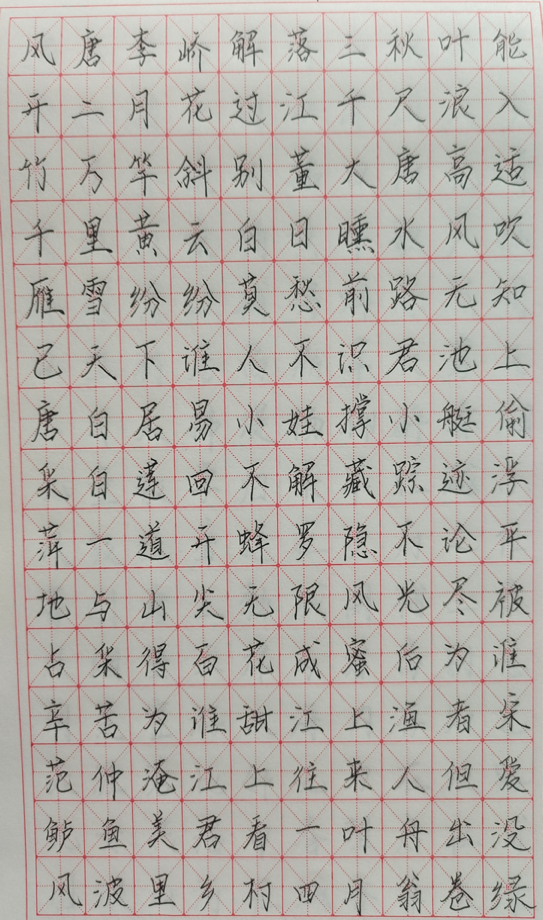 风唐李峤解落三秋叶能
开二月花过江千尺浪入
竹万竿斜别董大唐高适
千里黄云白日曛水风吹
雁雪纷纷莫愁前路无知
己天下谁人不识君池上
唐白居易小娃撑小艇偷
采白莲回不解藏踪迹浮
萍一道开蜂罗隐不论平
地与山尖无限风光尽被
占采得百花成蜜后为谁
辛苦为谁甜江上渔者宋
范仲淹江上往来人但爱
鲈鱼美君看一叶舟出没
风波里乡村四月翁卷绿